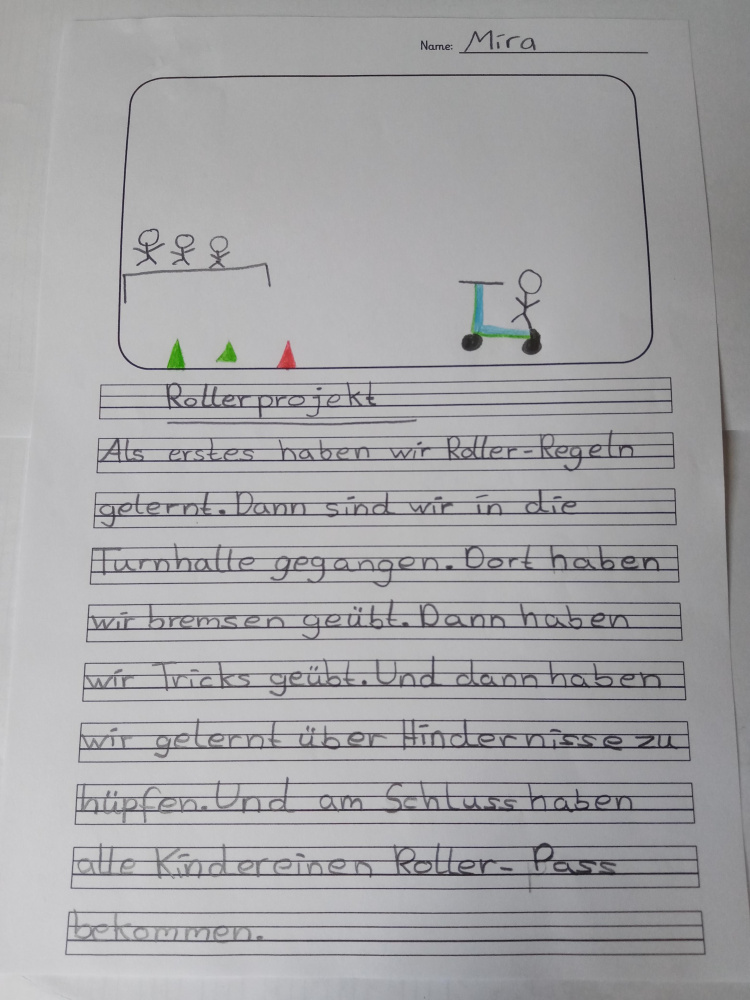 Name: Mira
Rollerprojekt
Als erstes haben wir Roller-Regeln
gelernt. Dann sind wir in die
Turnhalle gegangen. Dort haben
wir bremsen geübt. Dann haben
wir Tricks geübt. Und dann haben
wir gelernt über Hindernisse zu
hüpfen. Und am Schluss haben
alle Kinder einen Roller- Pass
bekommen.